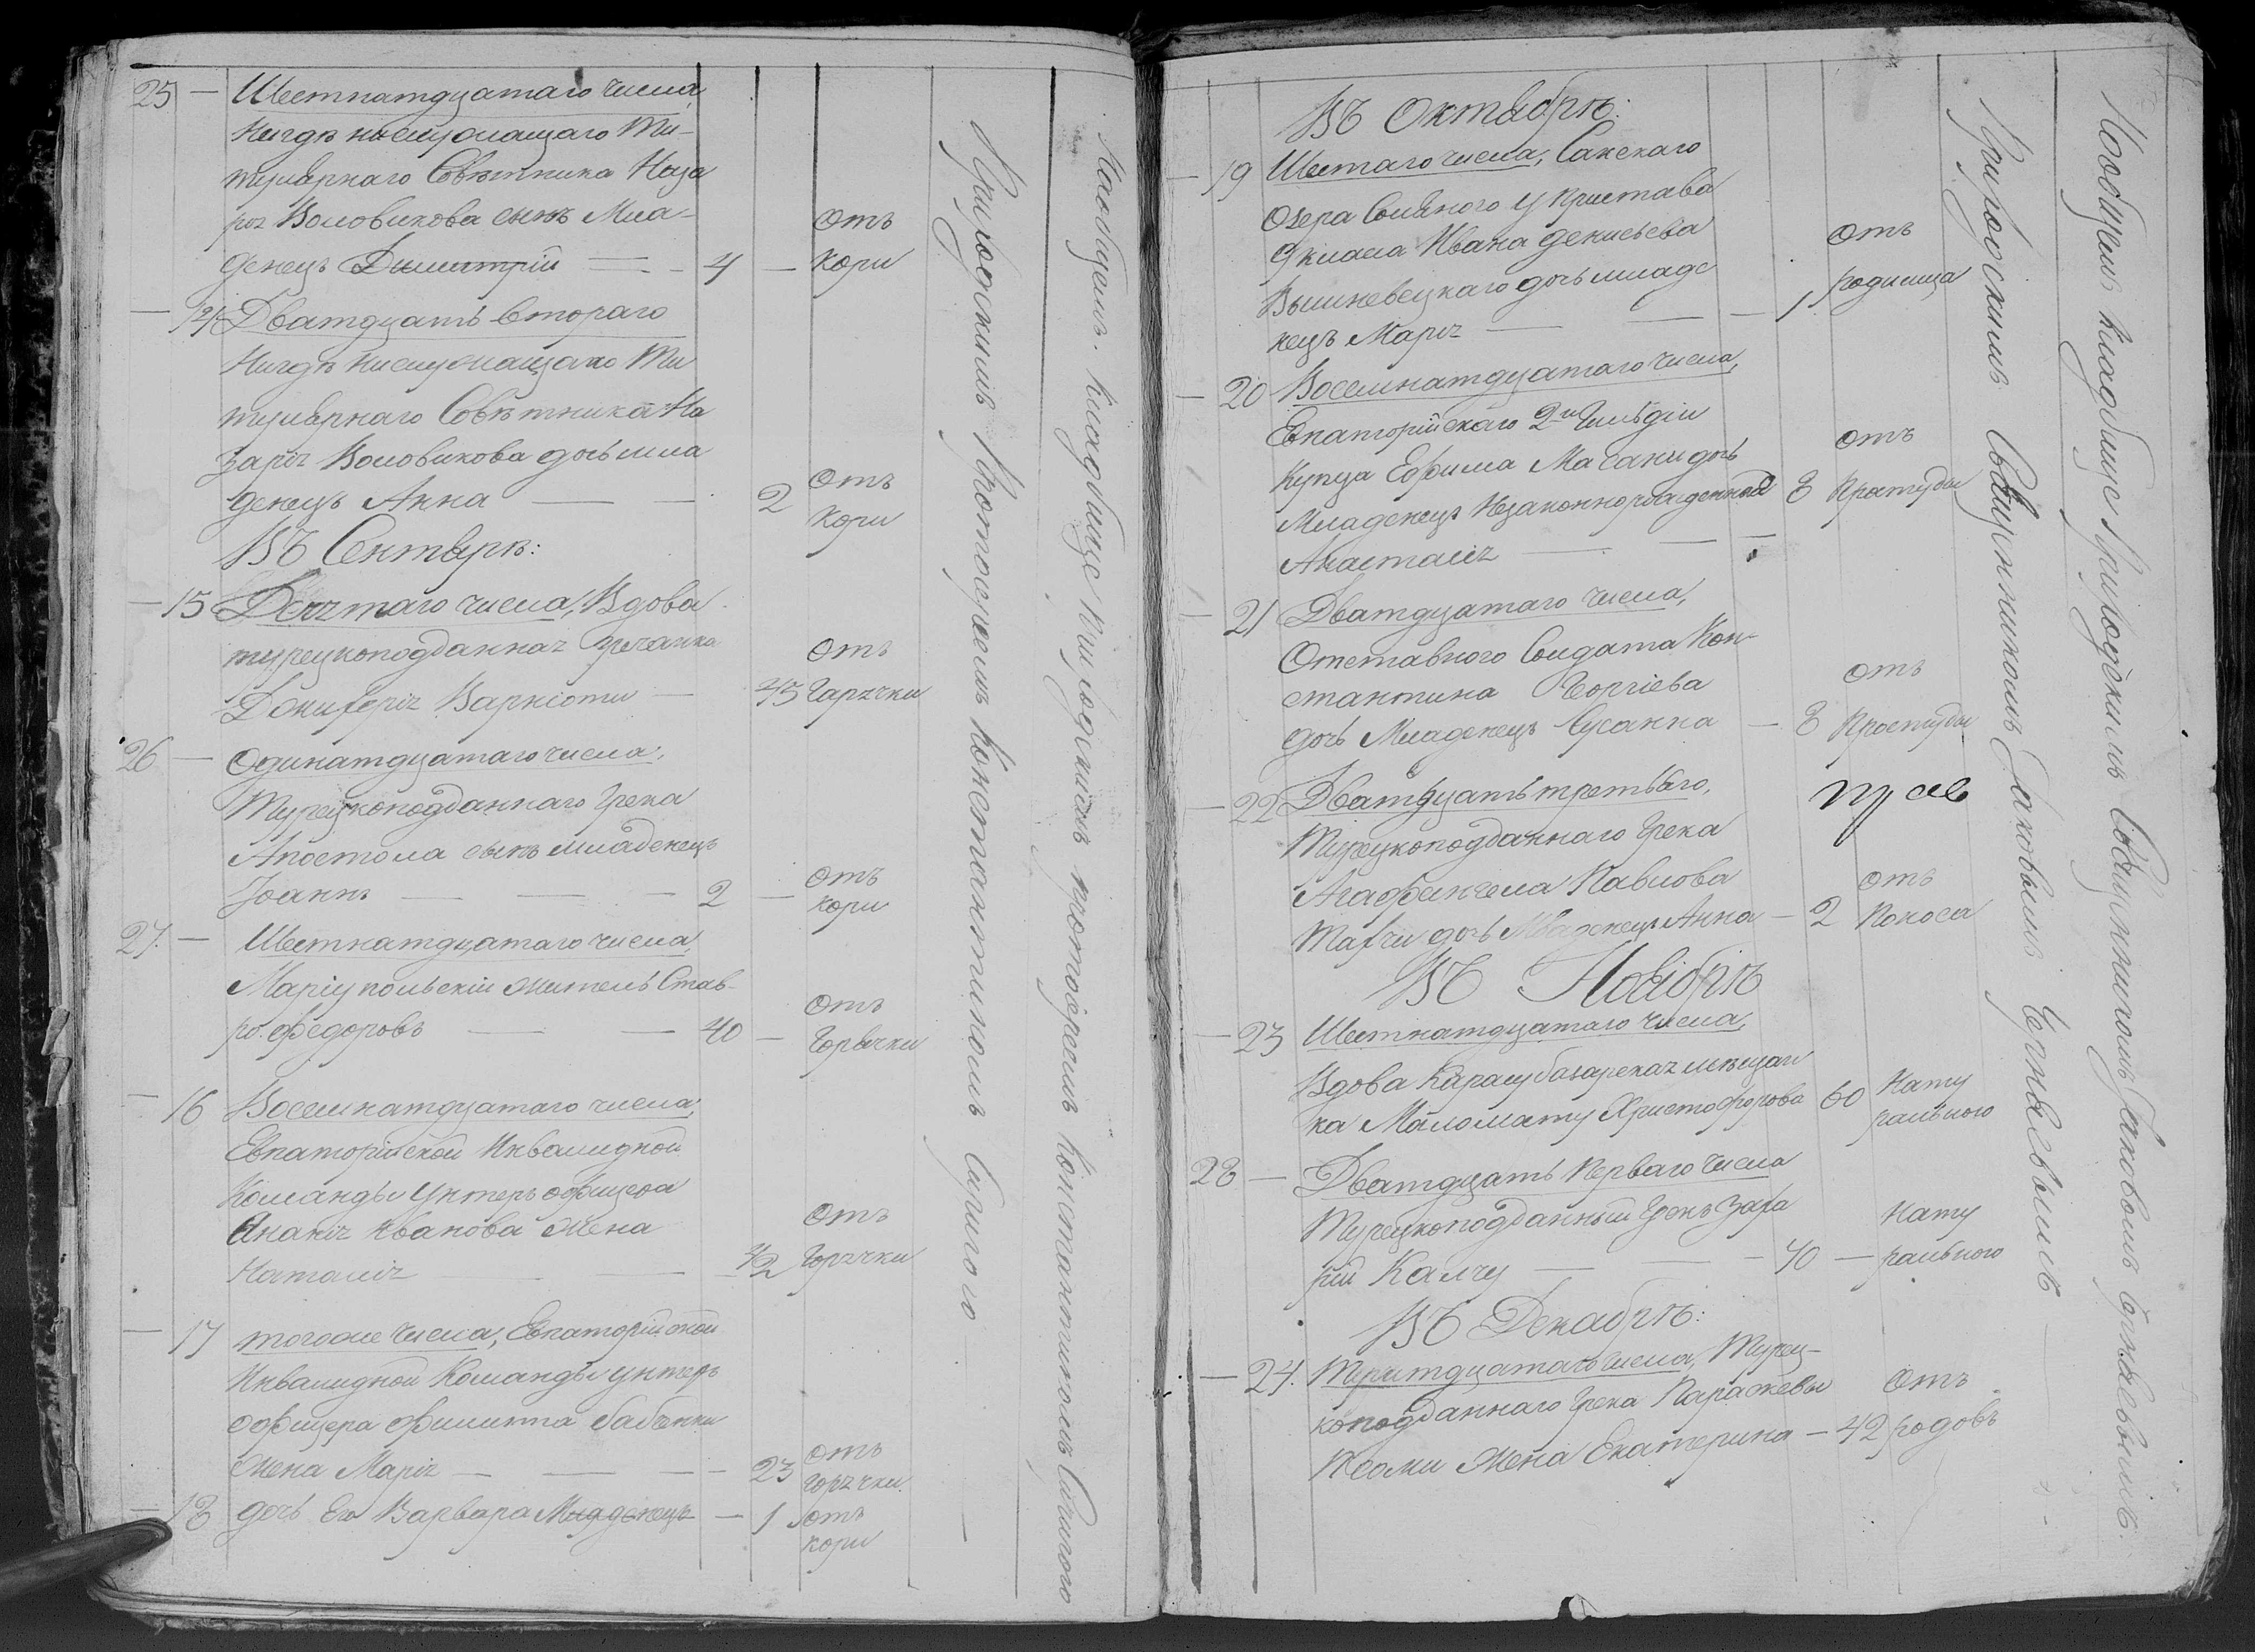 25 — Шестнатдцатаго числа,
Нигдѣ не служащаго Ти-
тулярнаго Совѣтника Наза
рія Воловикова сынъ Мла-
денецъ Димитрій — 4 — отъ Кори
— 14 Дватдцать втораго
Нигдѣ не служащаго Ти
тулярнаго Совѣтника На
зарія Воловикова дочь мла
денецъ Анна — 2 отъ Кори
Въ Сентябрѣ:
— 15 Девятаго числа, Вдова
турецкоподданная Гречанка
Варкіоти — 45 отъ Гарячки
26 — Одинатдцатаго числа,
Турецкоподданнаго Грека
Апостола сынъ младенецъ
Іоаннъ — 2 — отъ кори
27. — Шестнатдцатаго числа,
Маріупольскій житель Став-
ро Федоровъ — 40 — отъ Горячки
— 16 Восемнатдцатаго числа,
Евпаторійской Инвалидной
Команды Унтеръ офицера
Ананія Иванова жена
Наталія — 42 отъ Горячки
— 17 тогоже числа, Евпаторійской
Инвалидной Команды унтеръ
офицера Филиппа
жена Марія — 23 отъ горячки
— 18 дочь Его Варвара Младенецъ — 1 отъ кори
Приходскимъ Протоіереемъ Константиномъ
На общемъ кладбище приходскимъ протоіереемъ Константиномъ
Въ Октябрѣ:
— 19 Шестаго числа, Сакскаго
Озера Солянаго Пристава
9 класа Ивана Денисьева
Вышневецкаго дочь младе
нецъ Марія — 1 отъ родимца
— 20 Восемнатдцатаго числа,
Евпаторійскаго 2й Гильдіи
Купца Ефима Мачани дочь
Младенецъ Незаконнорожденная 8 отъ Простуды
Анастасія —
— 21 Дватдцатаго числа,
Отставного Солдата Кон-
стантина Георгіева
дочь Младенецъ Сусанна — 8 отъ Простуды
— 22 Дватдцать третьяго,
Турецкоподданнаго Грека
Агафангела Павлова
дочь Младенецъ Анна — 2 отъ Поноса
Въ Ноябрѣ
— 23 Шестнатдцатаго числа,
Вдова Карасубазарская мѣщан
ка Маломату Христофорова 60 Нату рального
28 — Дватдцать перваго числа
Турецкоподданный Грекъ Заха
рій Калчу — 40 — Нату рального
Въ Декабрѣ:
— 24. Тритдцатаго числа, Турец-
коподданнаго Грека Паражевы
Псоми жена Екатерина — 42 отъ родовъ
Приходскимъ Священникомъ Іаковымъ Чернявскимъ
На общемъ кладбище Приходскимъ Священникомъ Іаковымъ Чернявскимъ.